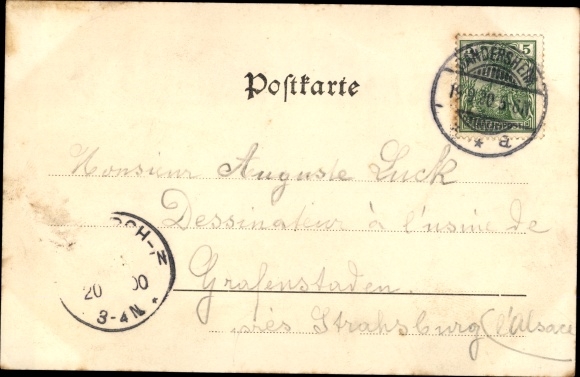 Postkarte
5
GANDERSHEIM
5-6N
* a
Monsieur Auguste Luck
Dessinateur à l'usine de
Grafenstaden.
près Strahsburg (l'Alsace
20 00
3-4N.